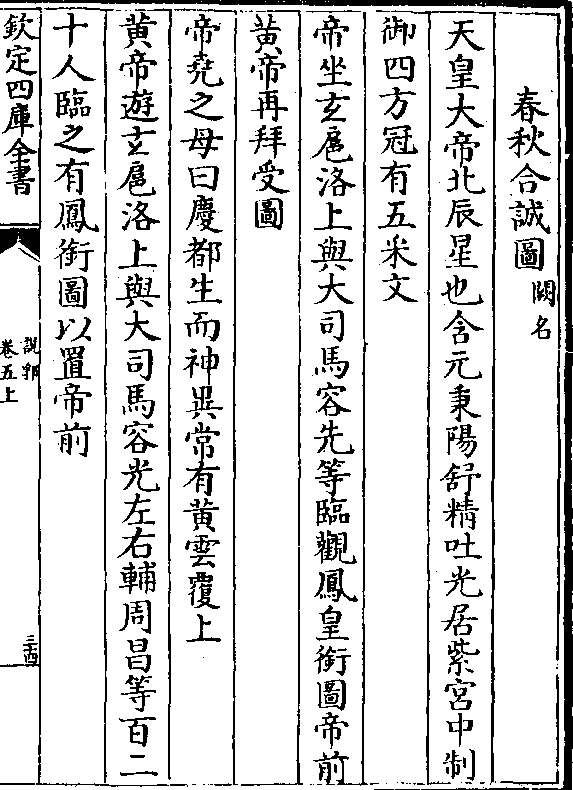 春秋合誠圖 闕名
天皇大帝北辰星也含元秉陽舒精吐光居紫宮中制
御四方冠有五采文
帝坐玄扈洛上與大司馬容光等臨觀鳳皇銜圖帝前
黄帝再拜受圖
帝堯之母曰慶都生而神異常有黄雲覆上
黄帝遊玄扈洛上與大司馬容光左右輔周昌等百二
十人臨之有鳳銜圖以置帝前
欽定四庫全書
說郛
卷五上
三十四